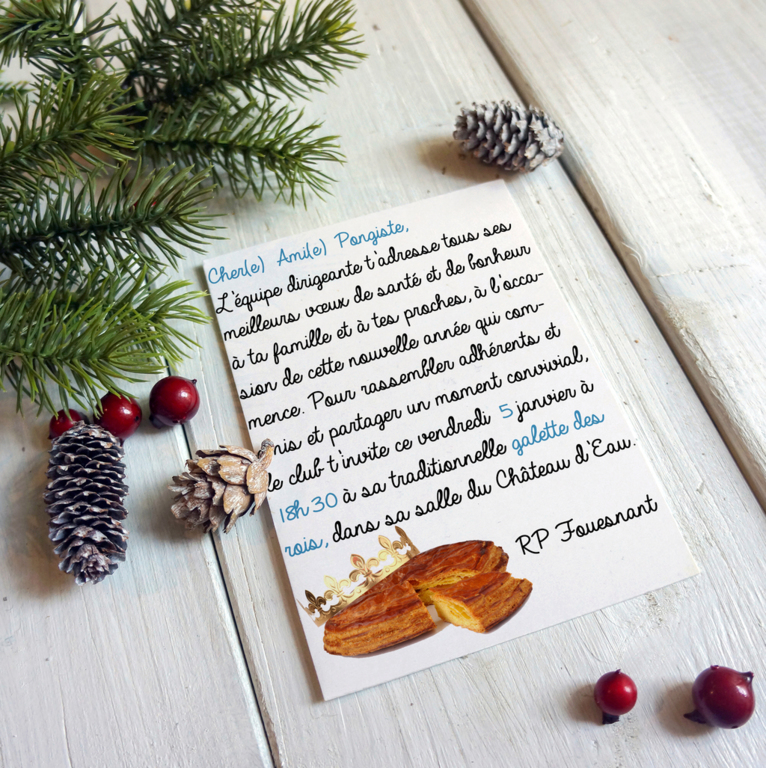 Cher(e) Ami(e) Pongiste,
L'équipe dirigeante t'adresse tous ses
meilleurs vœux de santé et de bonheur
à ta famille et à tes proches, à l'occa-
sion de cette nouvelle année qui com-
mence. Pour rassembler adhérents et
nis et partager un moment convivial,
le club t'invite ce vendredi 5 janvier à
18h30 à sa traditionnelle galette des
rois, dans sa salle du Château d'Eau.
RP Fouesnant